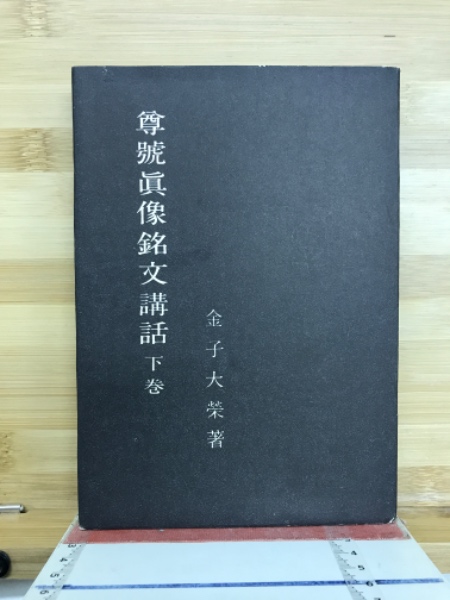 尊號眞像銘文講話 下巻
金子大榮著